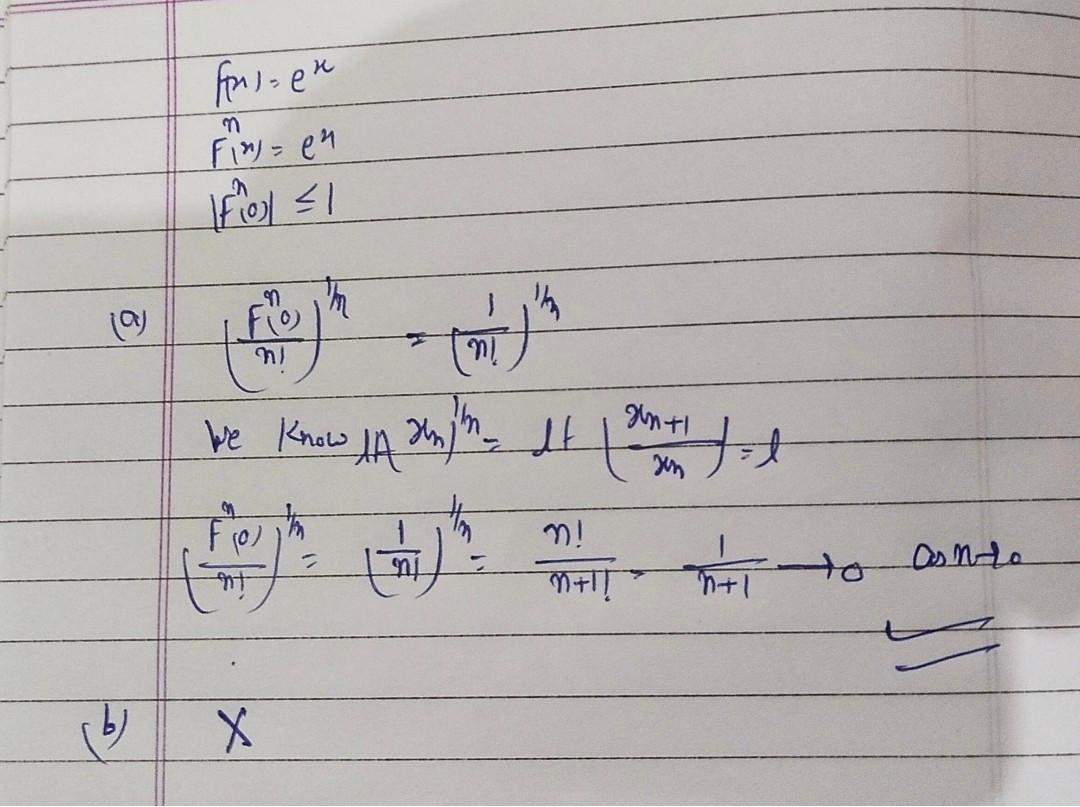 f(x) = e^x
F^n(x) = e^x
|F^n(0)| ≤ 1
(a) (F^n(0)/n!)^1/n = (1/n!)^1/n
We Know lt x_n)^1/n = lt (x_n+1/x_n) = l
(F^n(0)/n!)^1/n = (1/n!)^1/n = n!/n+1! = 1/n+1 → 0 as n→∞
(b) X